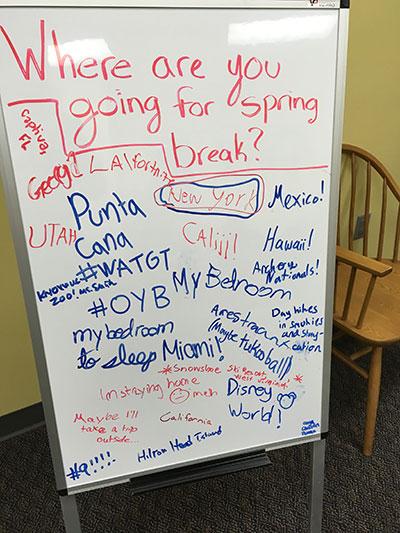 Where are you
going for spring
break?
Captiva,
FL
LA/fortnite
New York
Mexico!
UTAH
Punta
Cana
CALIjj!
Hawaii!
#WATGT
Archery
Nationals!
Knoxville
ZOO!
#OYB
My Bedroom
Day hikes
in smokies
and stay-
cation
my bedroom
to sleep
Miami!
A restraunt
(Maybe tukoball)
*Snowshoe Ski Resort
West Virginia! *
I'm staying home
meh
Disney
World!
Maybe I'll
take a trip
outside...
California
Hilton Head Island
#9!!!!